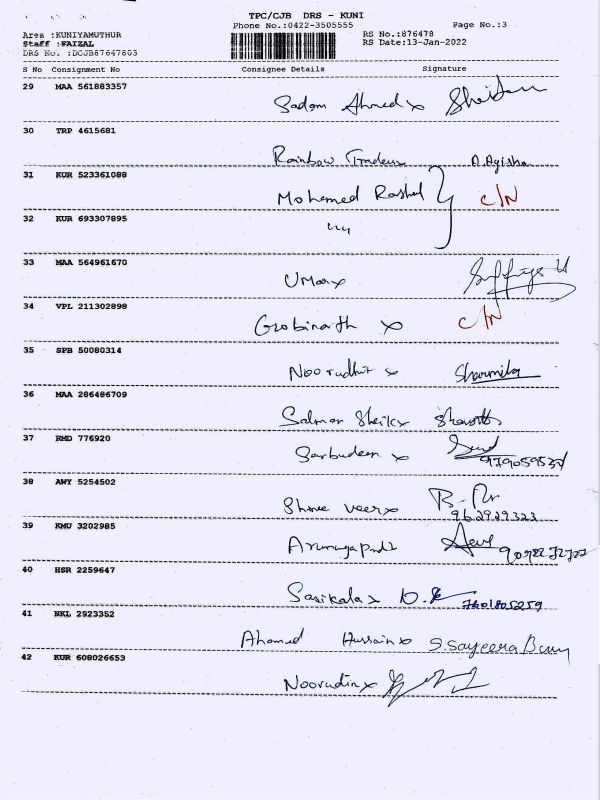 TPC/CJB DRS - KUNI
Phone No.:0422-3505555
Page No.:3
Area :KUNIYAMUTHUR
RS No.:876478
Staff :FAIZAL
RS Date:13-Jan-2022
DRS No. :DCJB87647803
S No Consignment No Consignee Details Signature
29 MAA 561883357
Sadam Ahmed x
30 TRP 4615681
Rainbow Traders A. Ayisha
31 KUR 523361088
Mohamed Rashul C/N
32 KUR 693307895
33 MAA 564961670
Umar x
34 VPL 211302898
Gobinath x C/N
35 SPB 50080314
Noorudhin x Sharmila
36 MAA 286486709
Salman Sheik x
37 RMD 776920
Sarbudeen x
38 AWY 5254502
Shree veer x
962929323
39 KMU 3202985
40 HSR 2259647
Sasikala x 7601805259
41 NKL 2923352
Ahamed Hussain x S. Sayeera Banu
42 KUR 608026653
Noorudin x